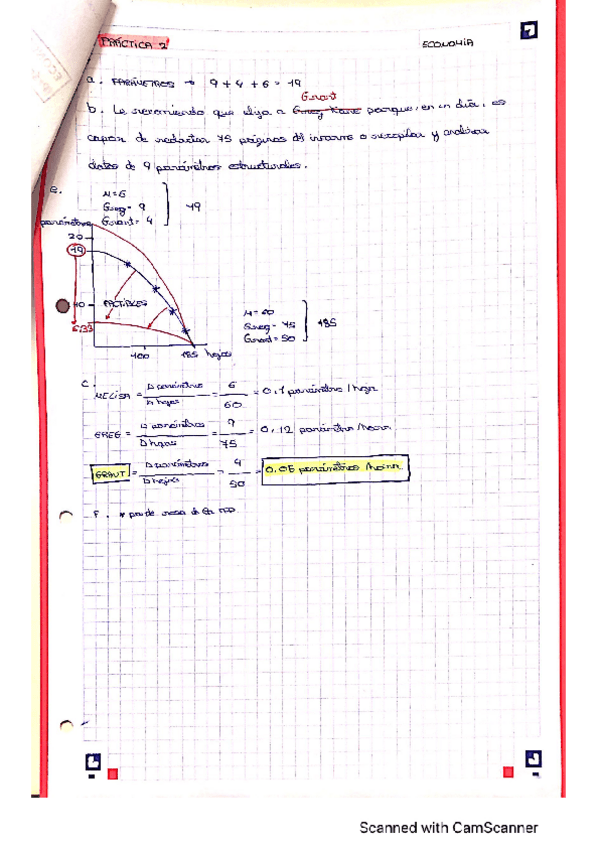 PRÁCTICA 2
ECONOMÍA
a. PARÁMETROS → 9 + 4 + 6 = 19
Grant
b. Le recomiendo que elija a Greg porque, en un día, es
capaz de redactar 75 páginas de informe o recopilar y analizar
datos de 9 parámetros estructurales.
e.
M = 6
Greg = 9
Grant = 4
19
parámetros
20
19
10
FACTIBLES
6,33
100
185 hojas
M = 60
Greg = 75
Grant = 50
185
c.
MELISA = Δ parámetros / Δ hojas = 6 / 60 = 0,1 parámetro / hoja
GREG = Δ parámetros / Δ hojas = 9 / 75 = 0,12 parámetro / hoja
GRANT = Δ parámetros / Δ hojas = 4 / 50 = 0,08 parámetros / hoja
F.
Scanned with CamScanner